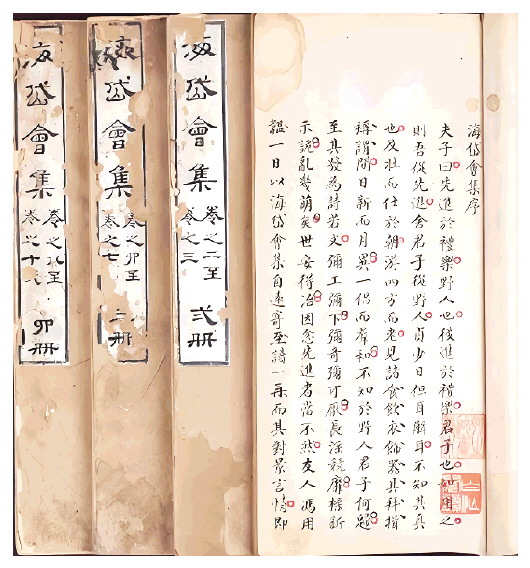 海岱會集序
夫子曰先進於禮樂野人也後進於禮樂君子也如用之
則吾從先進舍君子從野人貞少日但耳解耳不知其真
也及壯而仕於朝游四方而老見諸食飲衣飾器具科
稱謂間日新而月異一倡而羣和不知於野人君子何
至其發為詩若文彌工彌下彌奇彌可厭長淫競靡
示亂幾萌矣世安得冶因念先進者當不然友人馮用
韞一日以海岱會集自遠寄至讀一再而其對景言情即
海岱會集
卷之二至
卷之三
弍册
岱會集
卷之卯至
卷之七
三册
海岱會集
卷之八至
卷之十
卯册